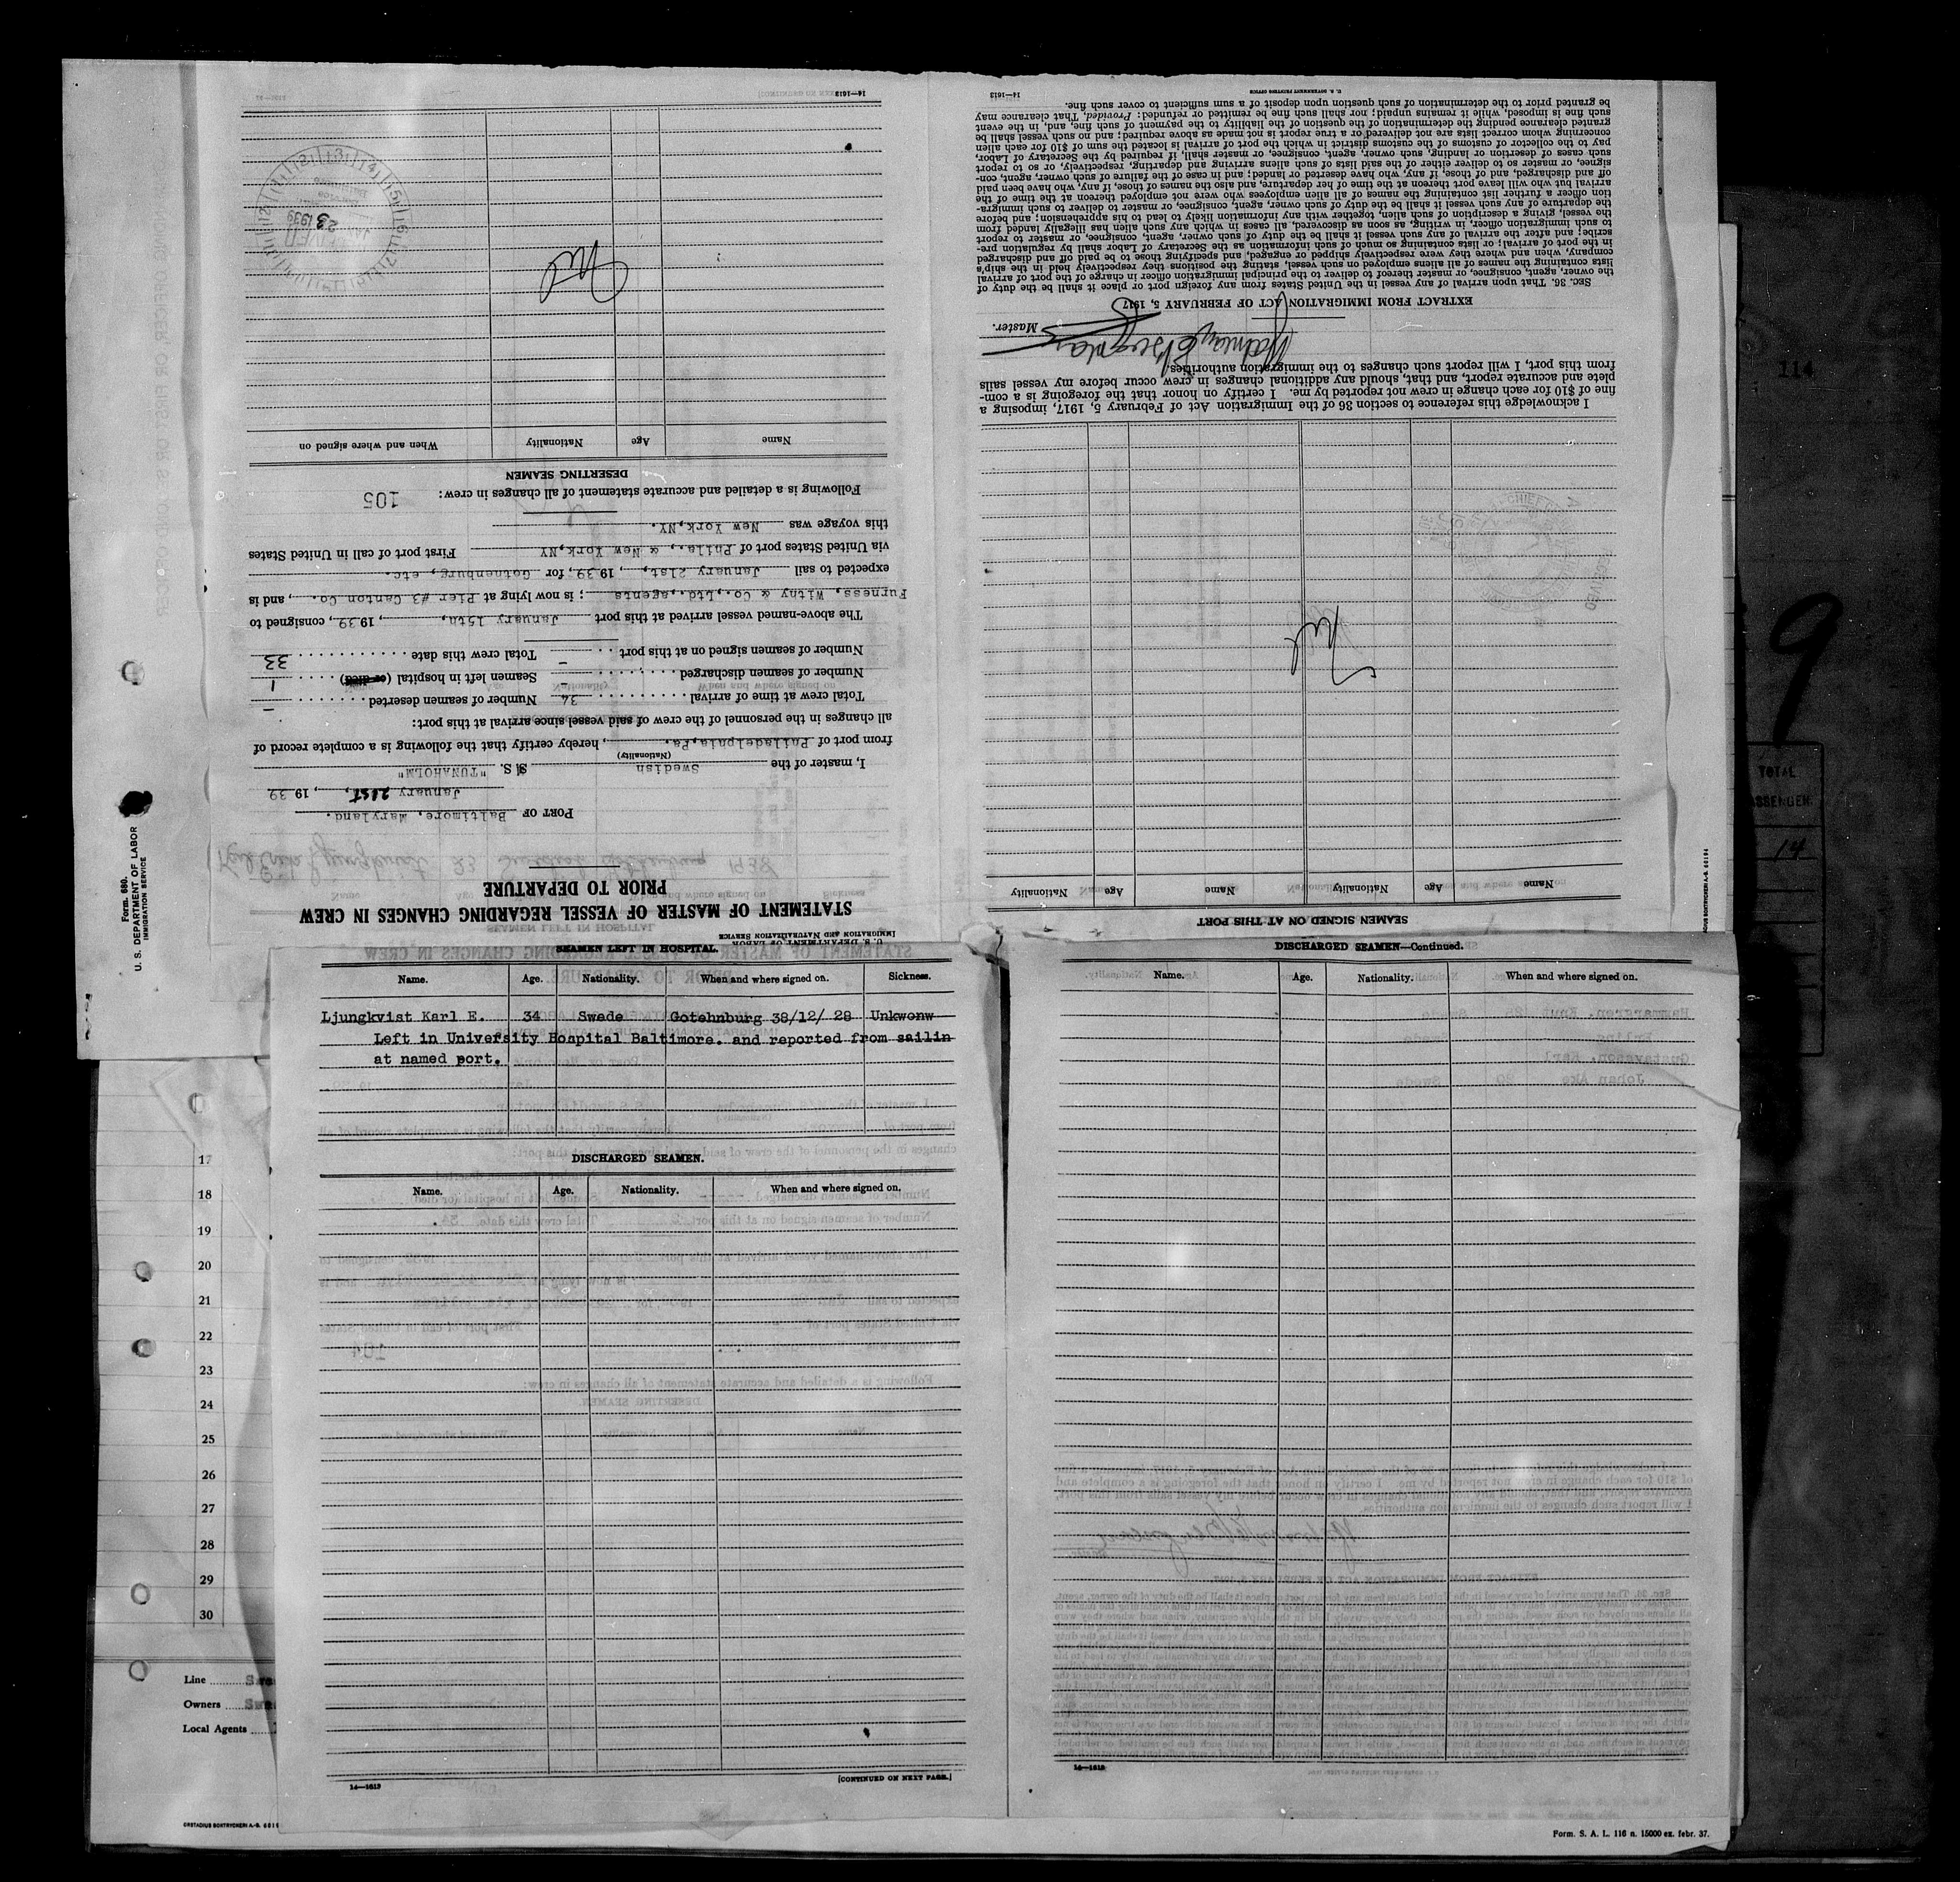 U. S. DEPARTMENT OF LABOR
IMMIGRATION AND NATURALIZATION SERVICE
STATEMENT OF MASTER OF VESSEL REGARDING CHANGES IN CREW
PRIOR TO DEPARTURE
PORT OF Baltimore, Maryland.
January 21st, , 19 39
I, master of the Swedish S. S. "TUNAHOLM"
(Nationality)
from port of Philadelphia,Pa. , hereby certify that the following is a complete record of
all changes in the personnel of the crew of said vessel since arrival at this port:
Total crew at time of arrival 34 Number of seamen deserted –
Number of seamen discharged – Seamen left in hospital (or died) 1
Number of seamen signed on at this port – Total crew this date 33
The above-named vessel arrived at this port January 15th, , 19 39, consigned to
Furness, Witny & Co.,Ltd.,agents ; is now lying at Pier #3 Canton Co. , and is
expected to sail January 21st, , 19 39, for Gothenburg, etc.
via United States port of Phila., & New York,NY First port of call in United States
this voyage was New York,NY.
Following is a detailed and accurate statement of all changes in crew: 105
DESERTING SEAMEN
Name Age Nationality When and where signed on
Nil
JAN 23 1939
14—1613
SEAMEN SIGNED ON AT THIS PORT
Name Age Nationality Name Age Nationality
Nil
I acknowledge this reference to section 36 of the Immigration Act of February 5, 1917, imposing a
fine of $10 for each change in crew not reported by me. I certify on honor that the foregoing is a com-
plete and accurate report, and that, should any additional changes in crew occur before my vessel sails
from this port, I will report such changes to the immigration authorities.
Master.
EXTRACT FROM IMMIGRATION ACT OF FEBRUARY 5, 1917
SEC. 36. That upon arrival of any vessel in the United States from any foreign port or place it shall be the duty of
the owner, agent, consignee, or master thereof to deliver to the principal immigration officer in charge of the port of arrival
lists containing the names of all aliens employed on such vessel, stating the positions they respectively held in the ship's
company, when and where they were respectively shipped or engaged, and specifying those to be paid off and discharged
in the port of arrival; or lists containing so much of such information as the Secretary of Labor shall by regulation pre-
scribe; and after the arrival of any such vessel it shall be the duty of such owner, agent, consignee, or master to report
to such immigration officer, in writing, as soon as discovered, all cases in which any such alien has illegally landed from
the vessel, giving a description of such alien, together with any information likely to lead to his apprehension; and before
the departure of any such vessel it shall be the duty of such owner, agent, consignee, or master to deliver to such immigra-
tion officer a further list containing the names of all alien employees who were not employed thereon at the time of the
arrival but who will leave port thereon at the time of her departure, and also the names of those, if any, who have been paid
off and discharged, and of those, if any, who have deserted or landed; and in case of the failure of such owner, agent, con-
signee, or master so to deliver either of the said lists of such aliens arriving and departing, respectively, or so to report
such cases of desertion or landing, such owner, agent, consignee, or master shall, if required by the Secretary of Labor,
pay to the collector of customs of the customs district in which the port of arrival is located the sum of $10 for each alien
concerning whom correct lists are not delivered or a true report is not made as above required; and no such vessel shall be
granted clearance pending the determination of the question of the liability to the payment of such fine, and, in the event
such fine is imposed, while it remains unpaid; nor shall such fine be remitted or refunded: Provided, That clearance may
be granted prior to the determination of such question upon deposit of a sum sufficient to cover such fine.
U. S. GOVERNMENT PRINTING OFFICE 14—1613
Form. 680.
U. S. DEPARTMENT OF LABOR
IMMIGRATION SERVICE
114
9
TOTAL
14
SEAMEN LEFT IN HOSPITAL.
Name. Age. Nationality. When and where signed on. Sickness.
Ljungkvist Karl E. 34 Swede Gotehnburg 38/12/ 28 Unkwonw
Left in University Hospital Baltimore. and reported from sailin
at named port.
DISCHARGED SEAMEN.
Name. Age. Nationality. When and where signed on.
14—1613 [CONTINUED ON NEXT PAGE.]
DISCHARGED SEAMEN—Continued.
Name. Age. Nationality. When and where signed on.
14—1613
17
18
19
20
21
22
23
24
25
26
27
28
29
30
Line
Owners
Local Agents
Form. S. A. L. 116 n. 15000 ex. febr. 37.